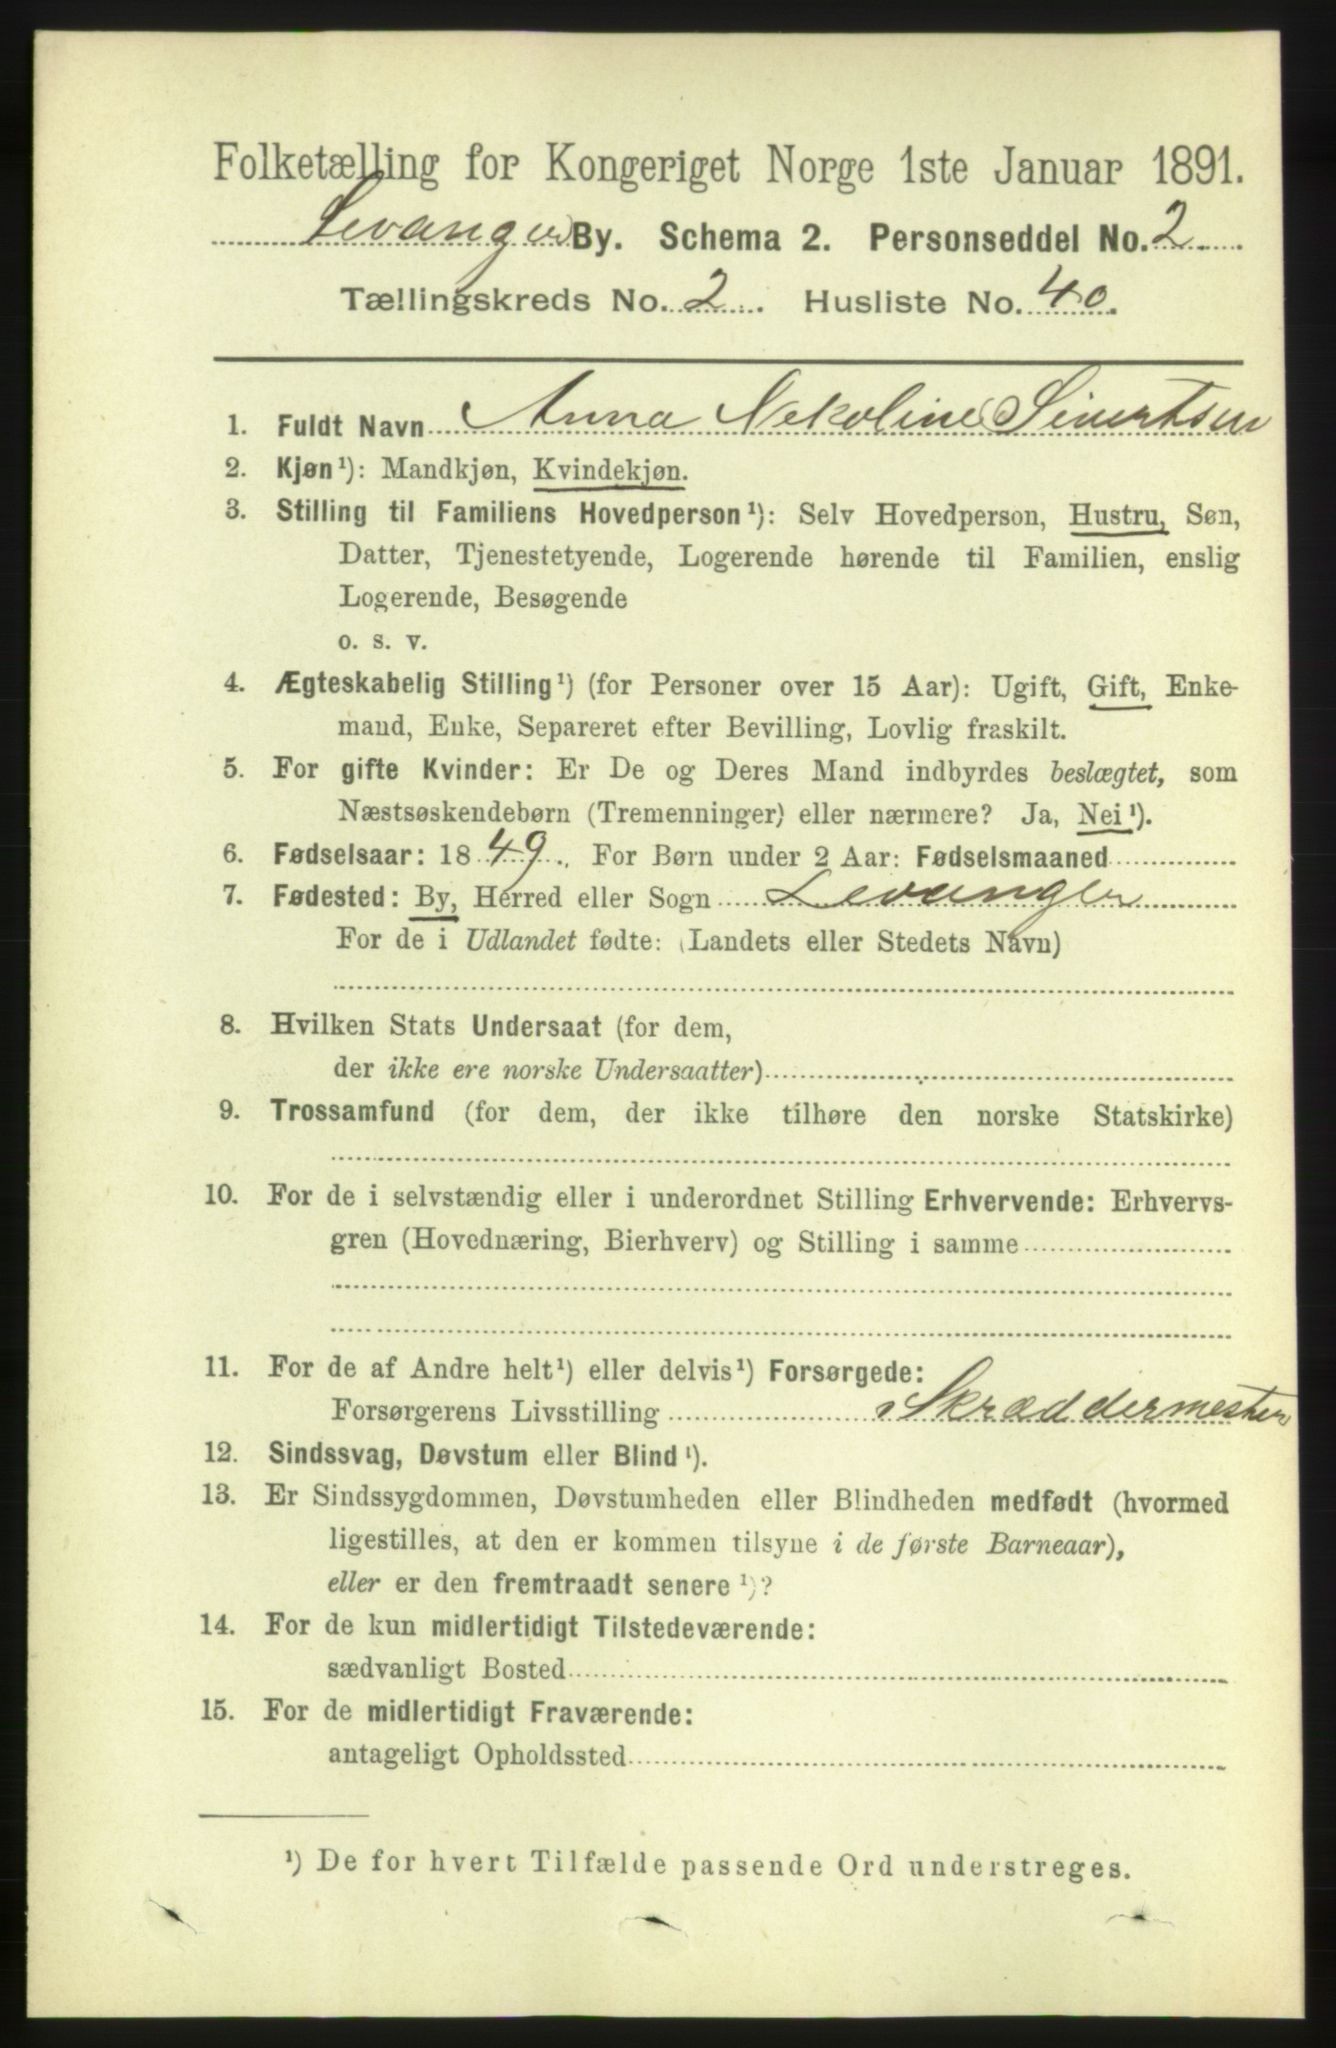 Folketælling for Kongeriget Norge 1ste Januar 1891.
Levanger By. Schema 2. Personseddel No. 2
Tællingskreds No. 2. Husliste No. 40.
1. Fuldt Navn Anna Nekoline Sivertsen
2. Kjøn¹): Mandkjøn, Kvindekjøn.
3. Stilling til Familiens Hovedperson¹): Selv Hovedperson, Hustru, Søn,
Datter, Tjenestetyende, Logerende hørende til Familien, enslig
Logerende, Besøgende
o. s. v.
4. Ægteskabelig Stilling¹) (for Personer over 15 Aar): Ugift, Gift, Enke-
mand, Enke, Separeret efter Bevilling, Lovlig fraskilt.
5. For gifte Kvinder: Er De og Deres Mand indbyrdes beslægtet, som
Næstsøskendebørn (Tremenninger) eller nærmere? Ja, Nei¹).
6. Fødselsaar: 1849. For Børn under 2 Aar: Fødselsmaaned
7. Fødested: By, Herred eller Sogn Levanger
For de i Udlandet fødte: (Landets eller Stedets Navn)
8. Hvilken Stats Undersaat (for dem,
der ikke ere norske Undersaatter)
9. Trossamfund (for dem, der ikke tilhøre den norske Statskirke)
10. For de i selvstændig eller i underordnet Stilling Erhvervende: Erhvervs-
gren (Hovednæring, Bierhverv) og Stilling i samme
11. For de af Andre helt¹) eller delvis¹) Forsørgede:
Forsørgerens Livsstilling Skræddermester
12. Sindssvag, Døvstum eller Blind¹).
13. Er Sindssygdommen, Døvstumheden eller Blindheden medfødt (hvormed
ligestilles, at den er kommen tilsyne i de første Barneaar),
eller er den fremtraadt senere¹)?
14. For de kun midlertidigt Tilstedeværende:
sædvanligt Bosted
15. For de midlertidigt Fraværende:
antageligt Opholdssted
¹) De for hvert Tilfælde passende Ord understreges.